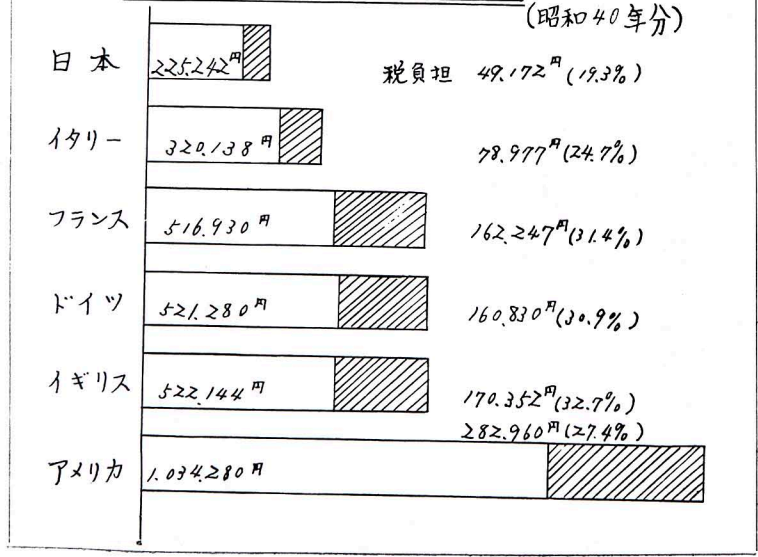 (昭和40年分)
日本 225.242円 税負担 49.172円(19.3%)
イタリー 320.138円 78.977円(24.7%)
フランス 516.930円 162.247円(31.4%)
ドイツ 521.280円 160.830円(30.9%)
イギリス 522.144円 170.352円(32.7%)
282.960円(27.4%)
アメリカ 1.034.280円